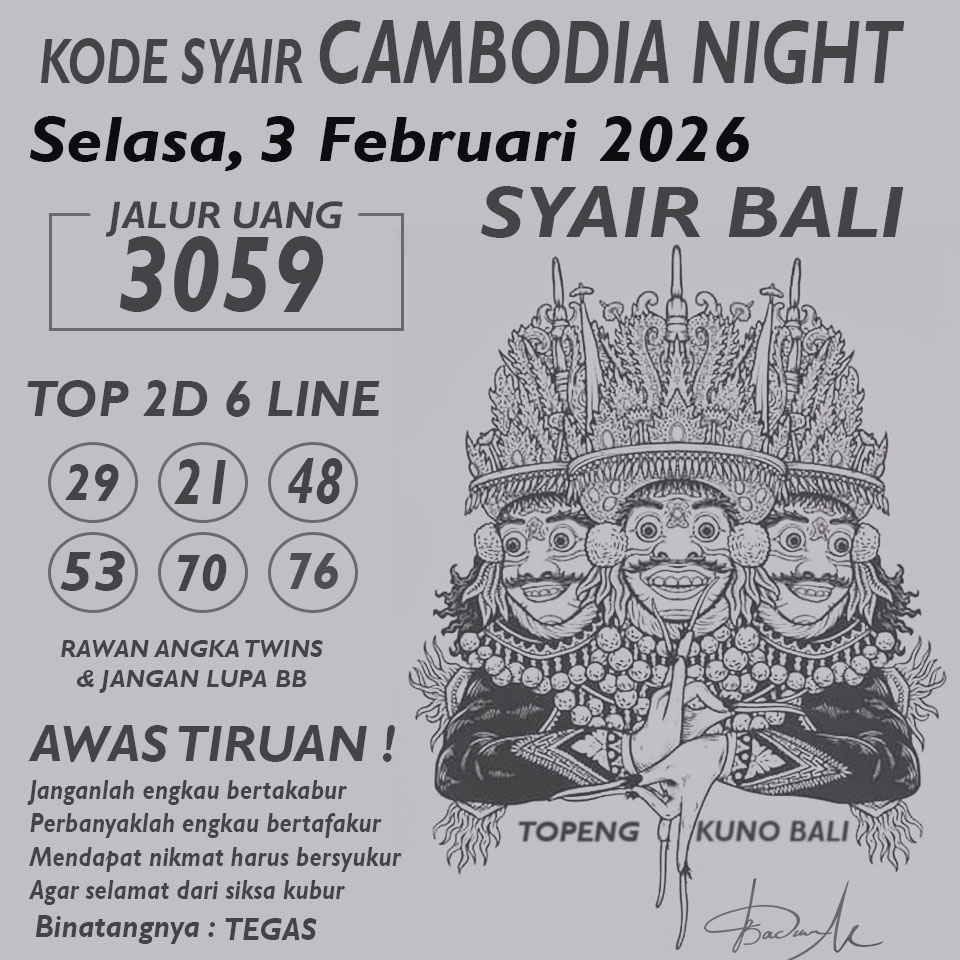 KODE SYAIR CAMBODIA NIGHT
Selasa, 3 Februari 2026
JALUR UANG
3059
SYAIR BALI
TOP 2D 6 LINE
29 21 48
53 70 76
RAWAN ANGKA TWINS
& JANGAN LUPA BB
AWAS TIRUAN !
Janganlah engkau bertakabur
Perbanyaklah engkau bertafakur
Mendapat nikmat harus bersyukur
Agar selamat dari siksa kubur
Binatangnya : TEGAS
TOPENG KUNO BALI